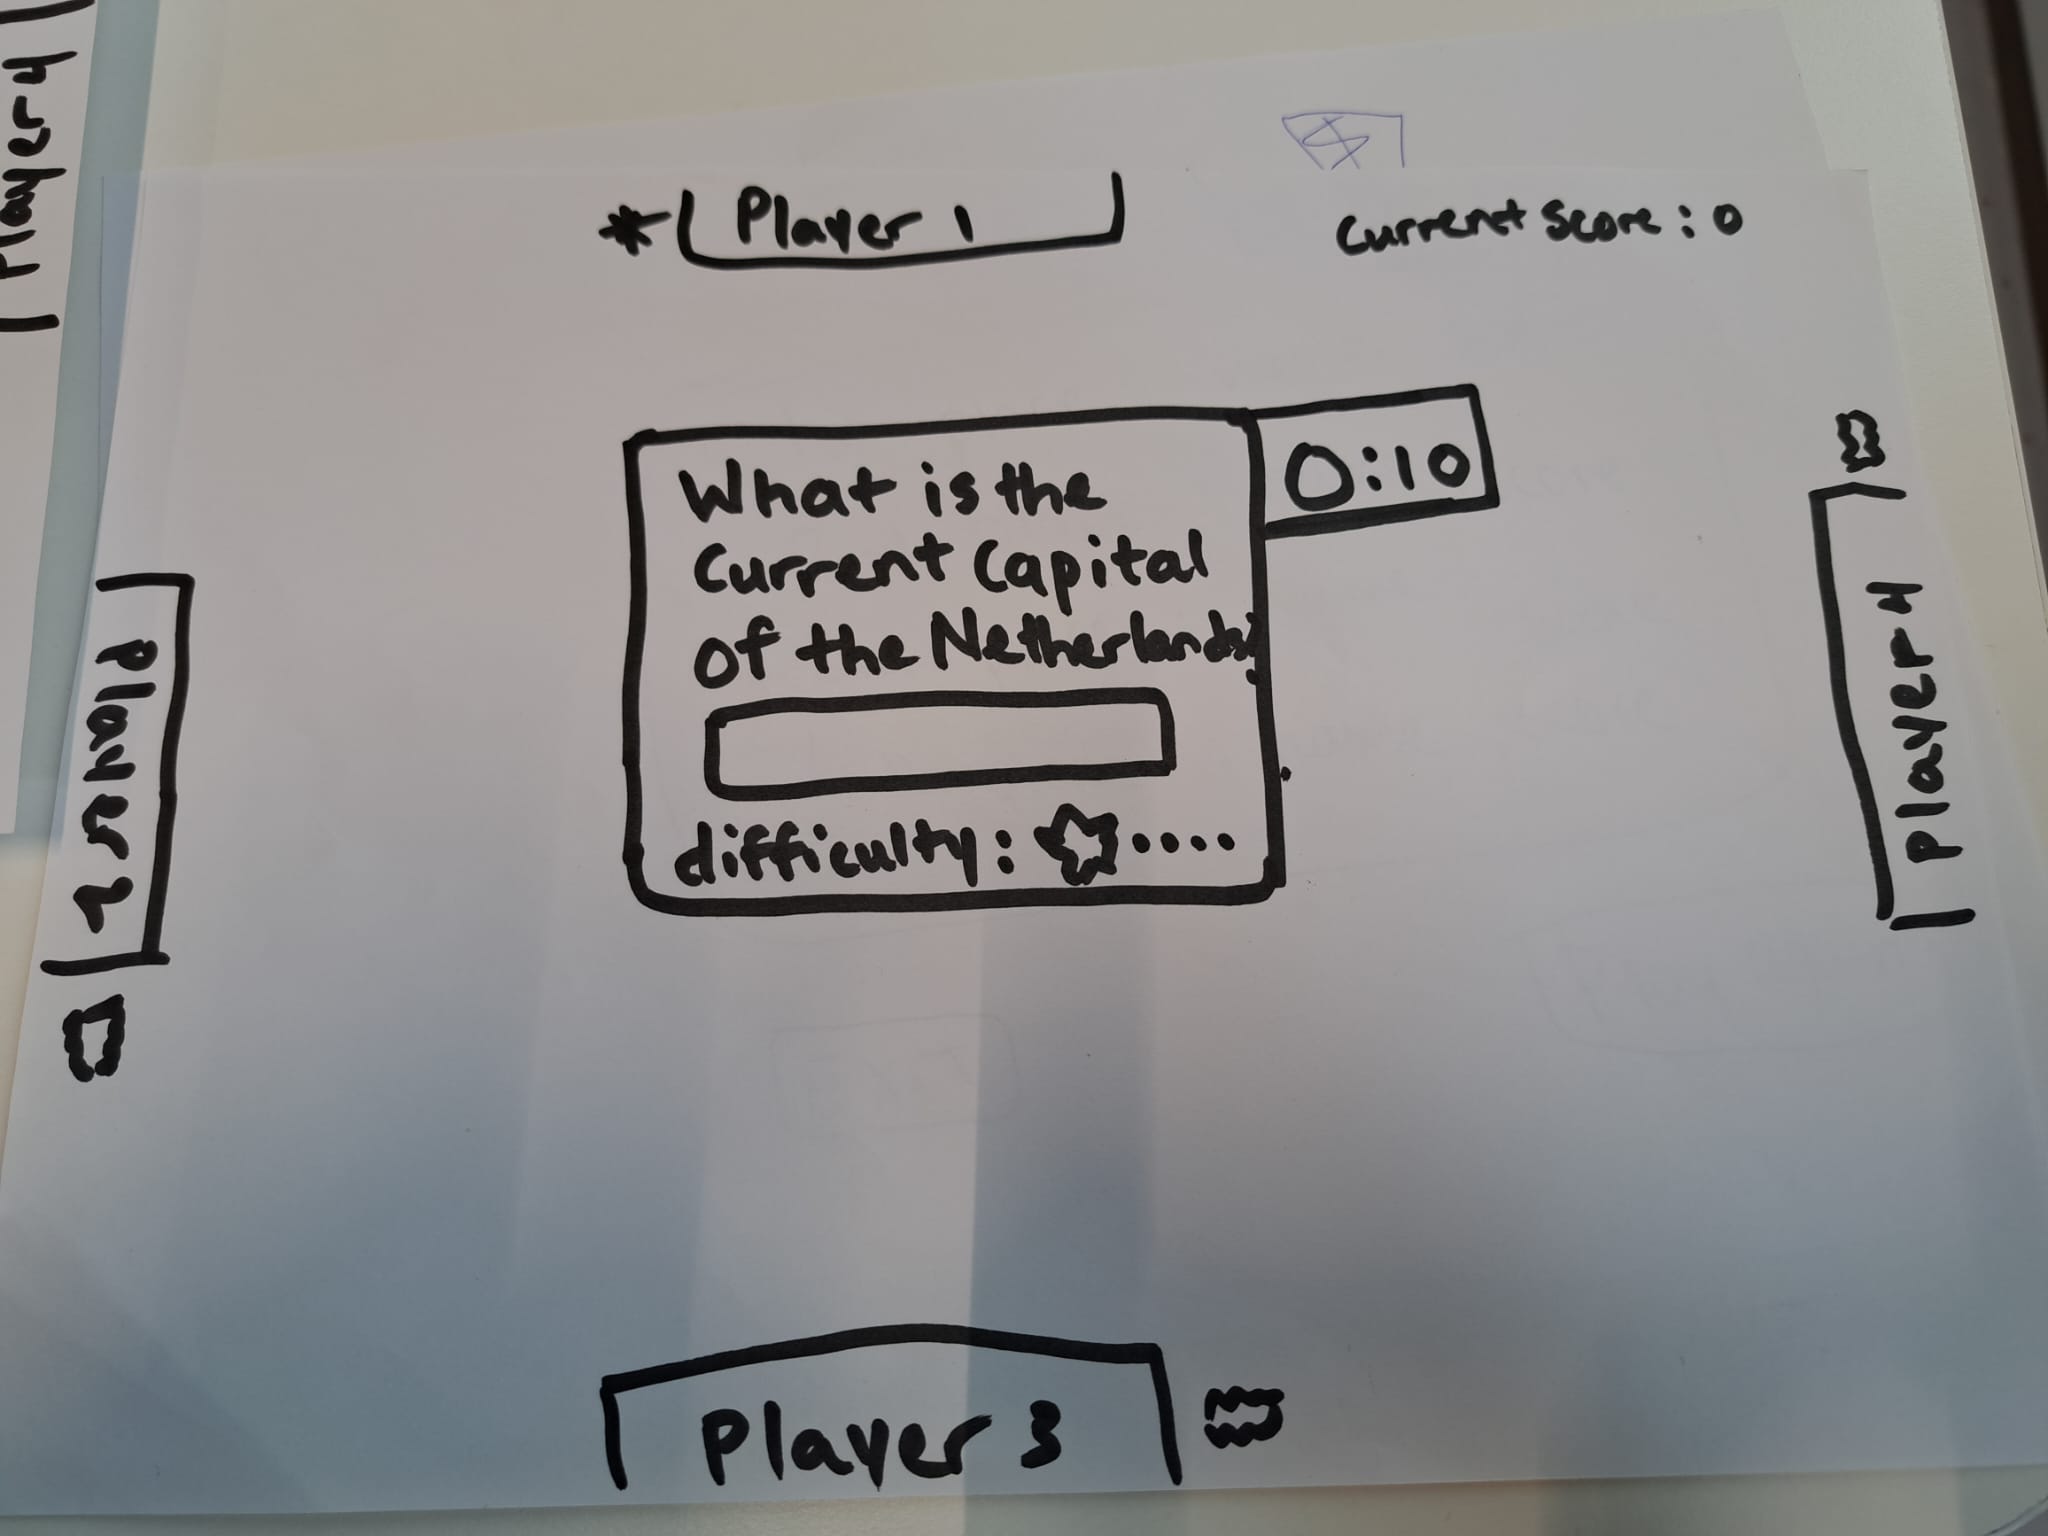 Player 4
Player 1
Current Score: 0
What is the
0:10
Current Capital
of the Netherlands?
difficulty:
Player 2
Player 4
Player 3